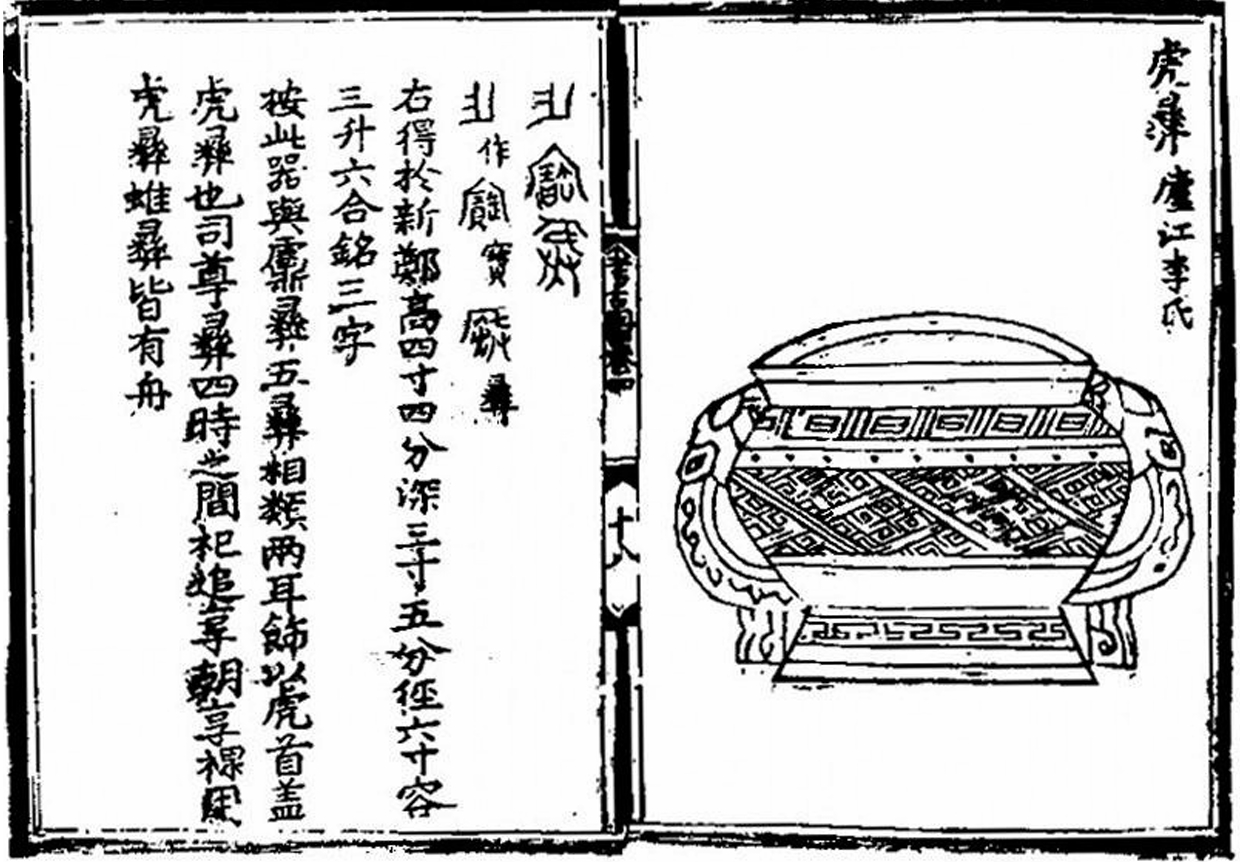 虎彝 廬江李氏
考古圖卷四
十八
作 寶 彝
右得於新鄭高四寸四分深三寸五分徑六寸容
三升六合銘三字
按此器與麃彝五彝相類兩耳飾以虎首盖
虎彝也司尊彝四時之間祀追享朝享祼用
虎彝蜼彝皆有舟